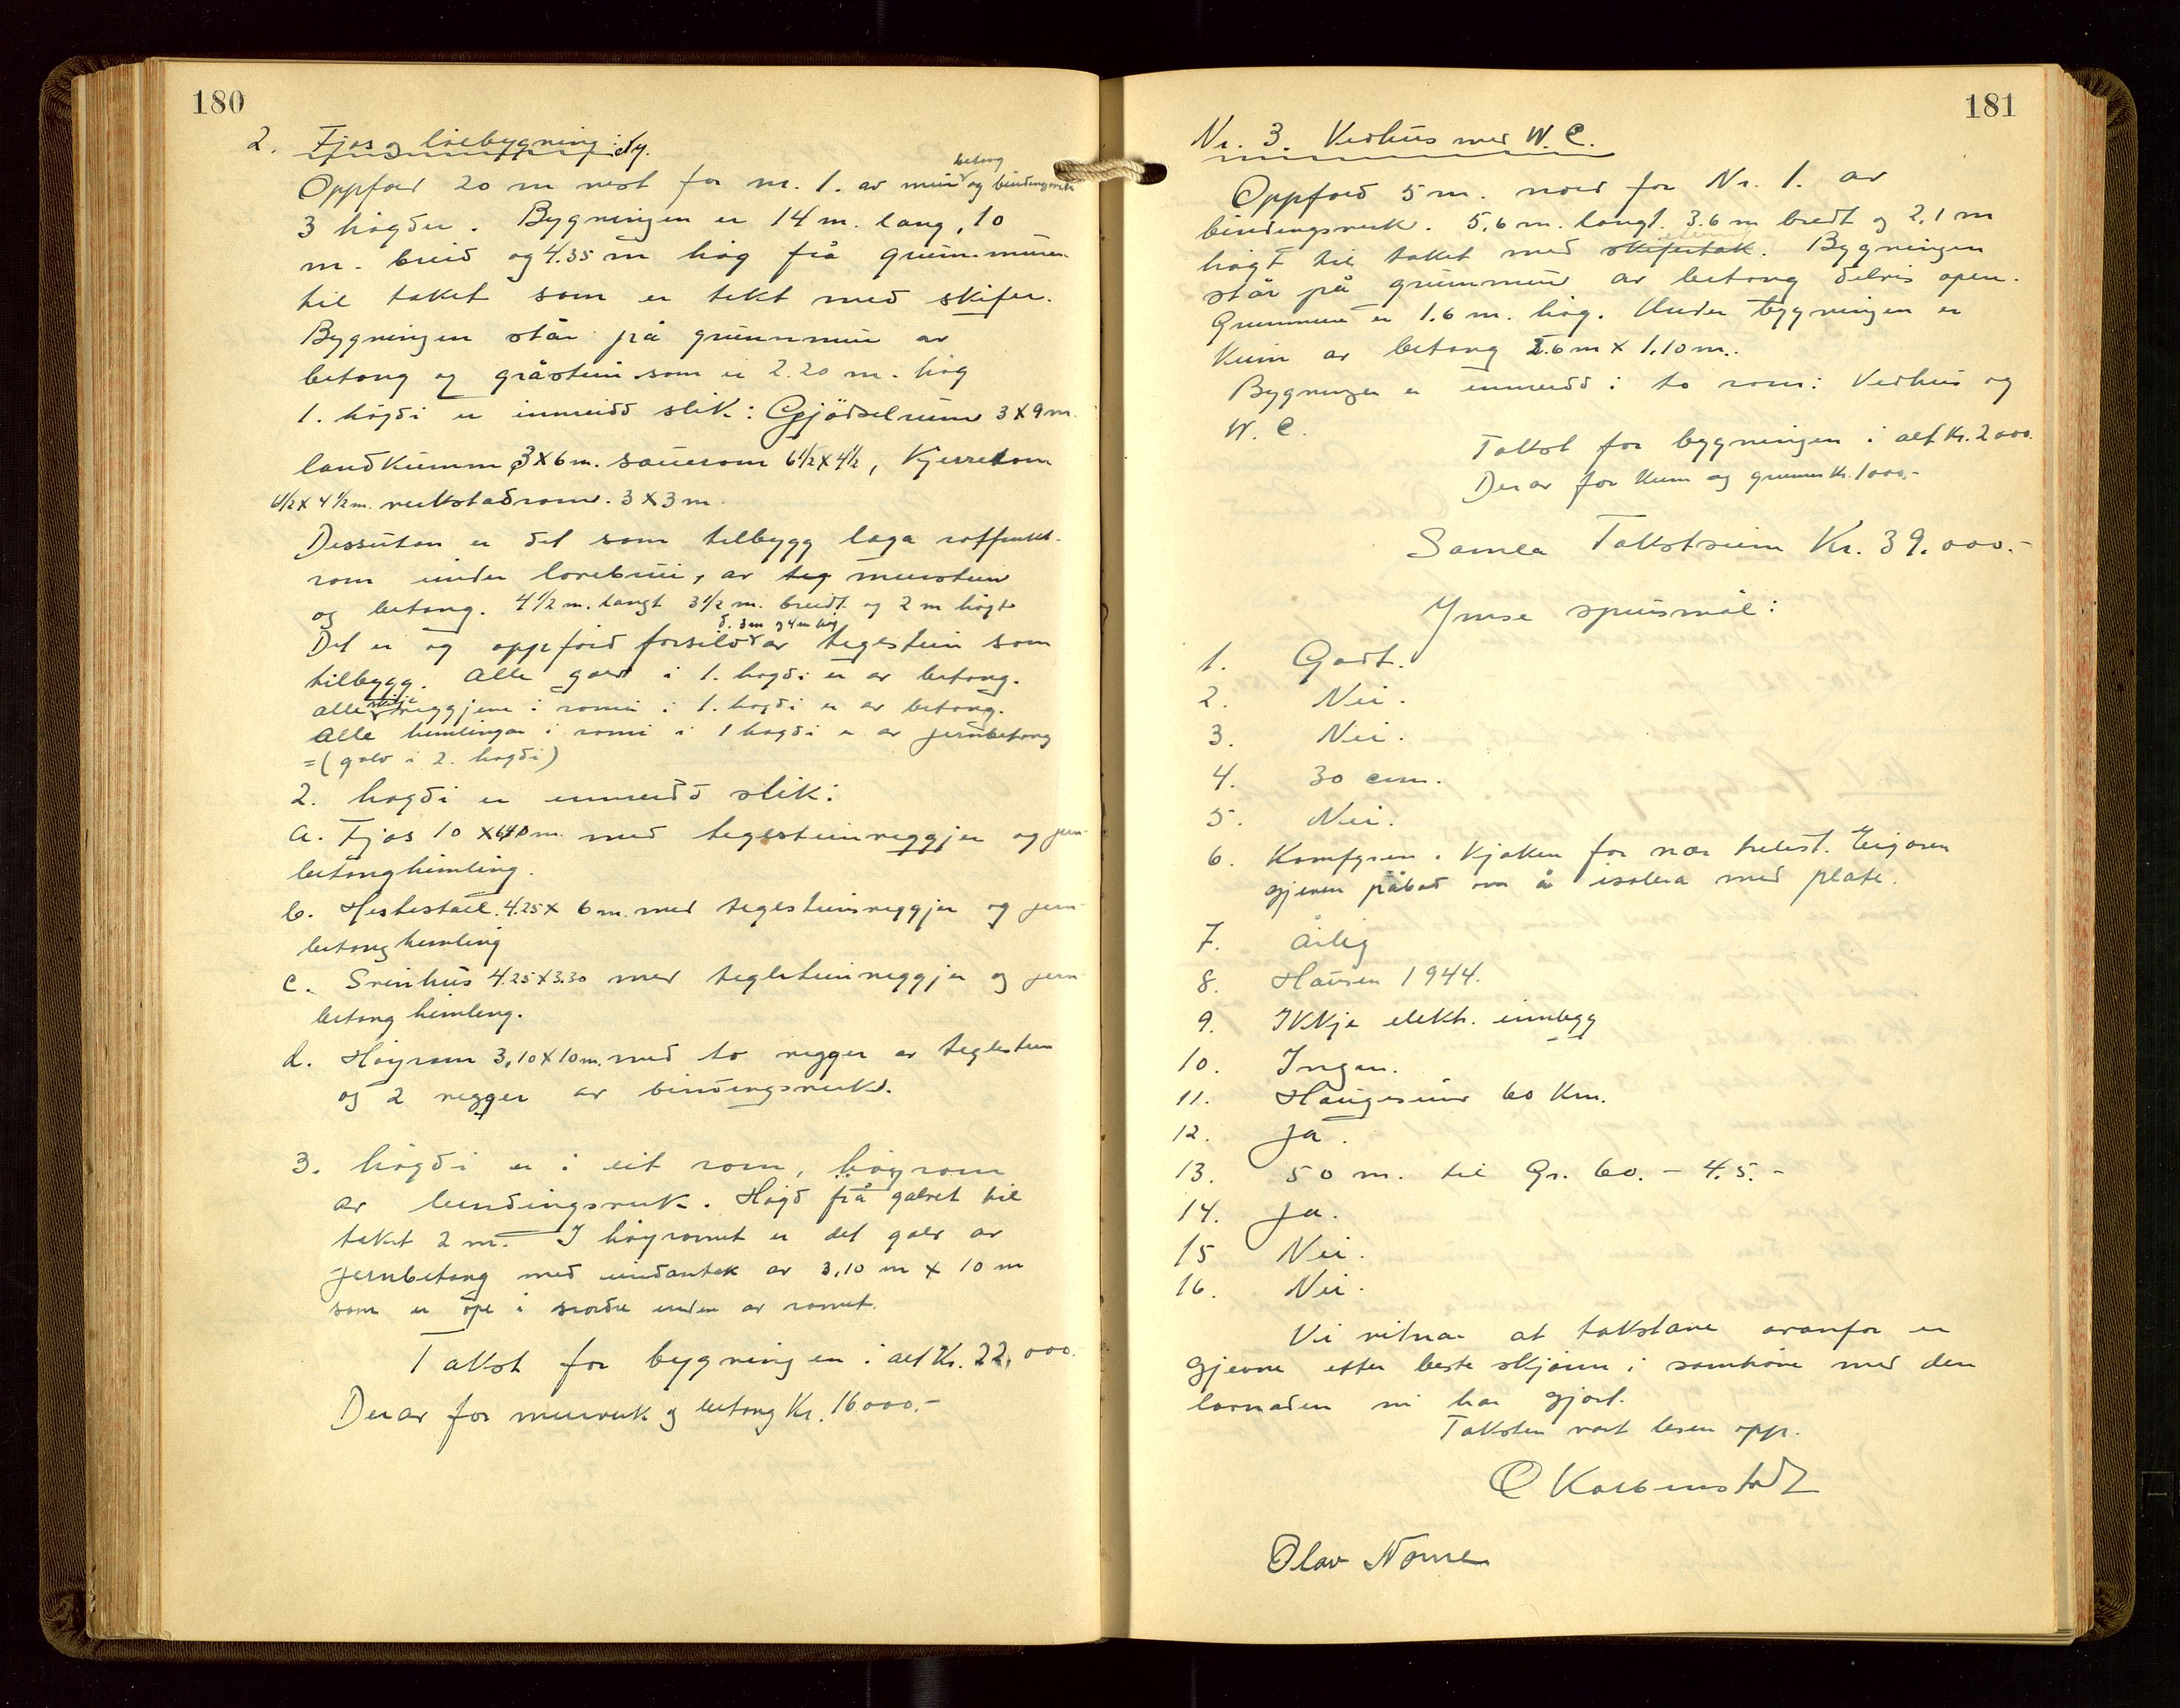 180
2. Fjos og löebygning
Oppförd 20 m vest for nr. 1. av mur betong og bindingsverk
3 högder. Bygningen er 14 m. lang, 10
m. breid og 4.35 m hög frå grunnmuren
til taket som er tekt med skifer.
Bygningen står på grunnmur av
betong og gråstein som er 2.20 m. hög
1. högdi er innreidd slik: Gjödselrum 3 X 9 m.
landkumm 3 X 6 m. sauerom 6½ X 4½, Kjerrerom
6½ X 4½ m. verkstadrom. 3 X 3 m.
Dessutan er det som tilbygg laga
rom under lovebrui, av teg murstein
og betong. 4½ m. langt 3½ m. breidt og 2 m högt
Det er og oppförd forsilo d. 3 m og 4 m hög av teglstein som
tilbygg. Alle golv i 1. hogdi er av betong.
alle skilje veggjene i romi i 1. hogdi er av betong.
Alle himlingar i romi i 1 hogdi er av jernbetong
=(golv i 2. hogdi)
2. hogdi er innreidd slik:
a. Fjos 10 X 6.40 m. med teglsteinveggjer og jern-
betonghimling.
b. Hestestall. 4.25 X 6 m. med teglsteinsveggjer og jern-
betong himling
c. Svinhus 4.25 X 3.30 med teglsteinveggjer og jern-
betong himling.
d. Höyrom 3,10 X 10 m. med to vegger av teglstein
og 2 vegger av bindingsverk.
3. högdi er i eit rom, höyrom
av bindingsverk. Högd frå golvet til
taket 2 m. I höyromet er det golv av
jernbetong med undantak av 3,10 m X 10 m
som er ope i nordre enden av romet.
Takst for bygningen i alt Kr. 22,000.
Derav for murverk og betong Kr. 16000.-
181
Nr. 3. Vedhus med W. C.
Oppförd 5 m. nord for Nr. 1. av
bindingsverk. 5,6 m. langt. 3.6 m bredt og 2,1 m
högt til taket med skifertak. Bygningen
står på grunnmur av betong delvis open.
Grunnmur er 1.6 m. hög. Under bygningen er
Kum av betong 2.6 m X 1.10 m.
Bygningen er innreidd i to rom: Vedhus og
W. C.
Takst for bygningen i alt Kr. 2000.
Derav for Kum og grunnm Kr. 1000,-
Samla Takstsum Kr. 39.000.-
Ymse spursmål:
1. Godt.
2. Nei.
3. Nei.
4. 30 cm.
5. Nei.
6. Komfyren i kjöken for nær trelist. Eigaren
gjeven påbod om å isolera med plate.
7. Årlig
8. Hausen 1944.
9. Ikkje elektr. innlegg
10. Ingen.
11. Haugesund 60 Km.
12. Ja.
13. 50 m. til Gr. 60. - 4.5.-
14. Ja.
15 Nei.
16. Nei.
Vi vitnar at takstane ovanfor er
gjevne etter beste skjönn i samhöve med den
lovnaden vi har gjort.
Taksten vart lesen opp.
Olav